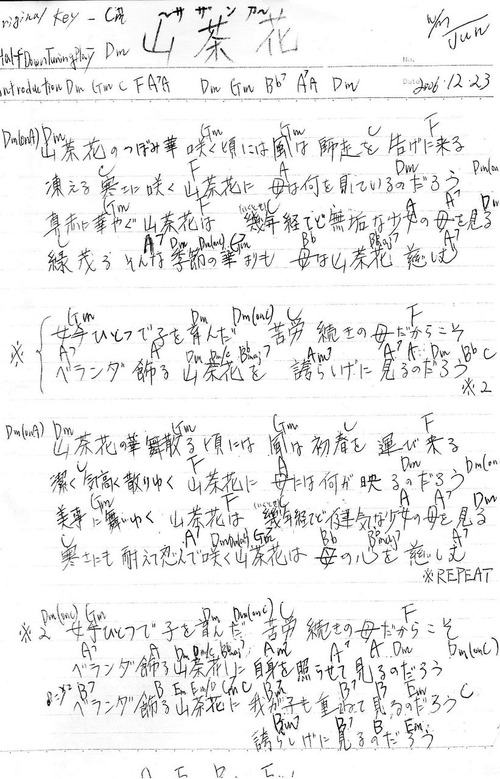 Original Key - C
～サザンカ～
山茶花
Half Down Tuning Play Dm
Jun
Introduction Dm Gm C F A7 A Dm Gm Bb7 A7 A Dm
Date 2006・12・23
Dm(onA) Dm Gm Gm C F
山茶花のつぼみ華 咲く頃には 風は 師走を 告げに来る
C F A Dm Dm(on
凍える 寒さに咲く 山茶花に 母は何を見ているのだろう
Gm F C A A7 Dm
真赤に華やぐ 山茶花は 幾年経てど無垢な少女の母を見る
C A7 Dm Dm(onC) Gm Bb Bbmaj7 A7
緑茂る そんな季節の華よりも 母は山茶花 慈しむ
Gm Dm Dm(onC) C F
女手ひとつで子を育んだ 苦労 続きの 母だからこそ
A7 A Dm Bbmaj7 Am7 A7 A Dm Bb C
※ ベランダ飾る 山茶花を 誇らしげに 見るのだろう
※2
Dm(onA) Dm Gm Gm C F
山茶花の華 舞散る 頃には 風は 初春を 運び 来る
C F A Dm Dm(on
潔く 気高く 散りゆく 山茶花に 母には何が 映るのだろう
Gm F C A A7 Dm
美事に 舞いゆく 山茶花は 幾年経てど 健気な少女の母を見る
C A7 Dm Dm(onC) Gm Bb Bbmaj7 A7
寒さにも 耐えて忍んで咲く山茶花は 母の心を 慈しむ
※REPEAT
Dm(onC) Gm Dm Dm(onC) C F
※2 女手ひとつで 子を育んだ 苦労 続きの 母だからこそ
A7 A Dm Bbmaj7 Am7 A7 A Dm Dm(onC)
ベランダ飾る 山茶花に 自身を 照らせて 見るのだろう
B7 B Em Bm B7 B Em C
ベランダ飾る 山茶花に 我が子も 重ねて 見るのだろう
Bm7 B7 B Em
誇らしげに 見るのだろう